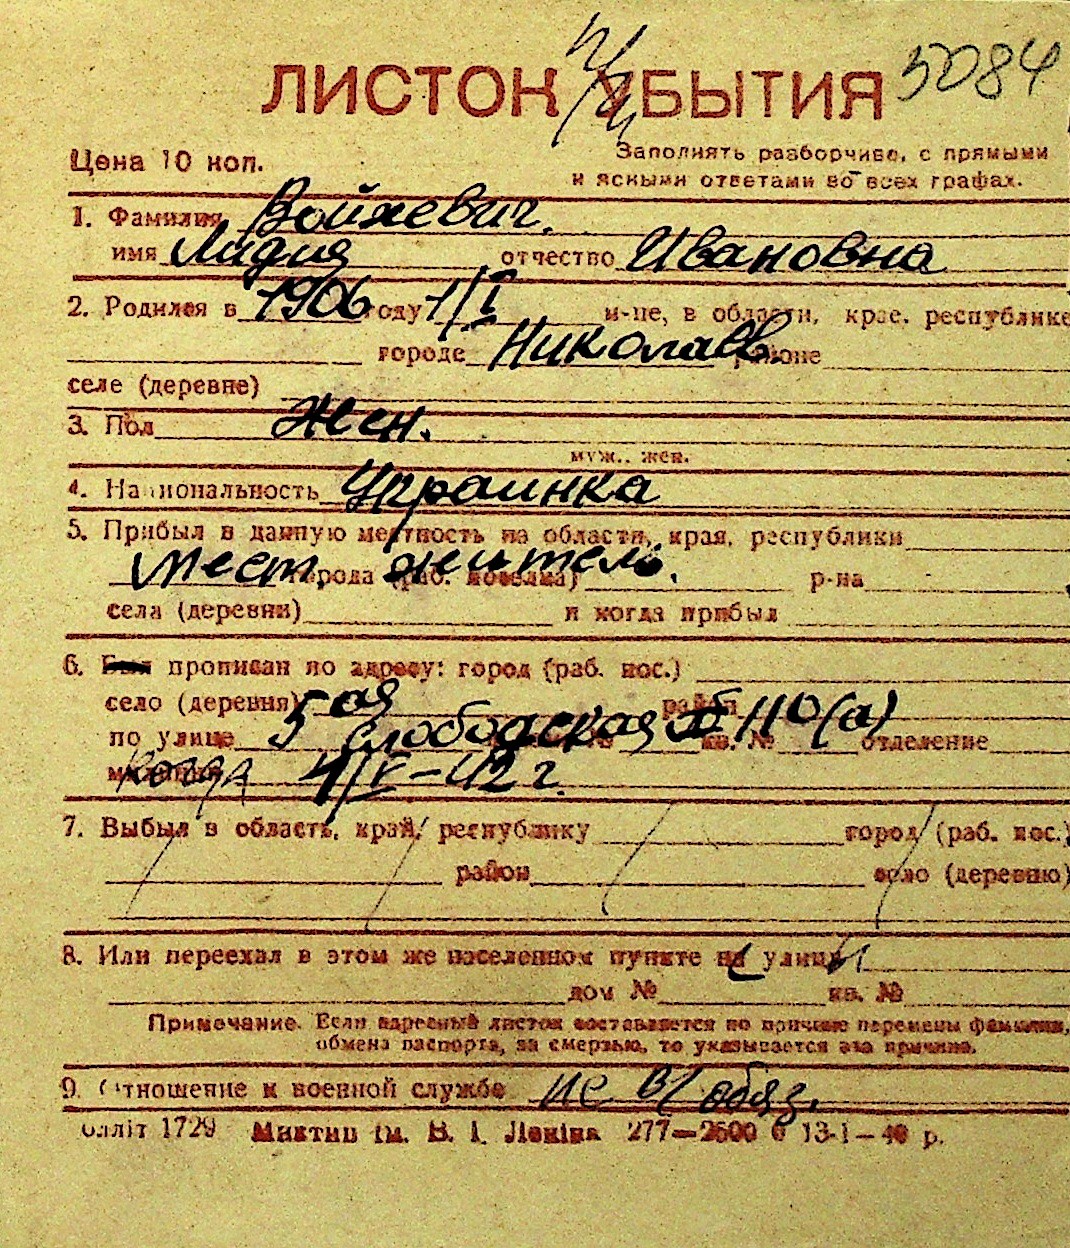 ЛИСТОК УБЫТИЯ 5084
Цена 10 коп.
Заполнять разборчиво, с прямыми
и ясными ответами во всех графах.
1. Фамилия Войхевич.
имя Лидия отчество Ивановна
2. Родился в 1906 году 1/I м-це, в области, крае, республике
городе Николаев. районе
селе (деревне)
3. Пол Жен.
муж., жен.
4. Национальность Украинка
5. Прибыл в данную местность из области, края, республики
Мест. житель. города (раб. поселка) р-на
села (деревни) и когда прибыл
6. Был прописан по адресу: город (раб. пос.)
село (деревня) район
по улице 5ая Слободская 110(а) кв. № отделение
милиции 4/V-42 г.
7. Выбыл в область, край, республику город (раб. пос.)
район село (деревню)
8. Или переехал в этом же населенном пункте на улицу
дом № кв. №
Примечание. Если адресный листок составляется по причине перемены фамилии,
обмена паспорта, за смертью, то указывается эта причина.
9. Отношение к военной службе не в/обяз.
блліт 1729 Миктип ім. В. І. Леніна 277—2500 6 13-I—40 р.